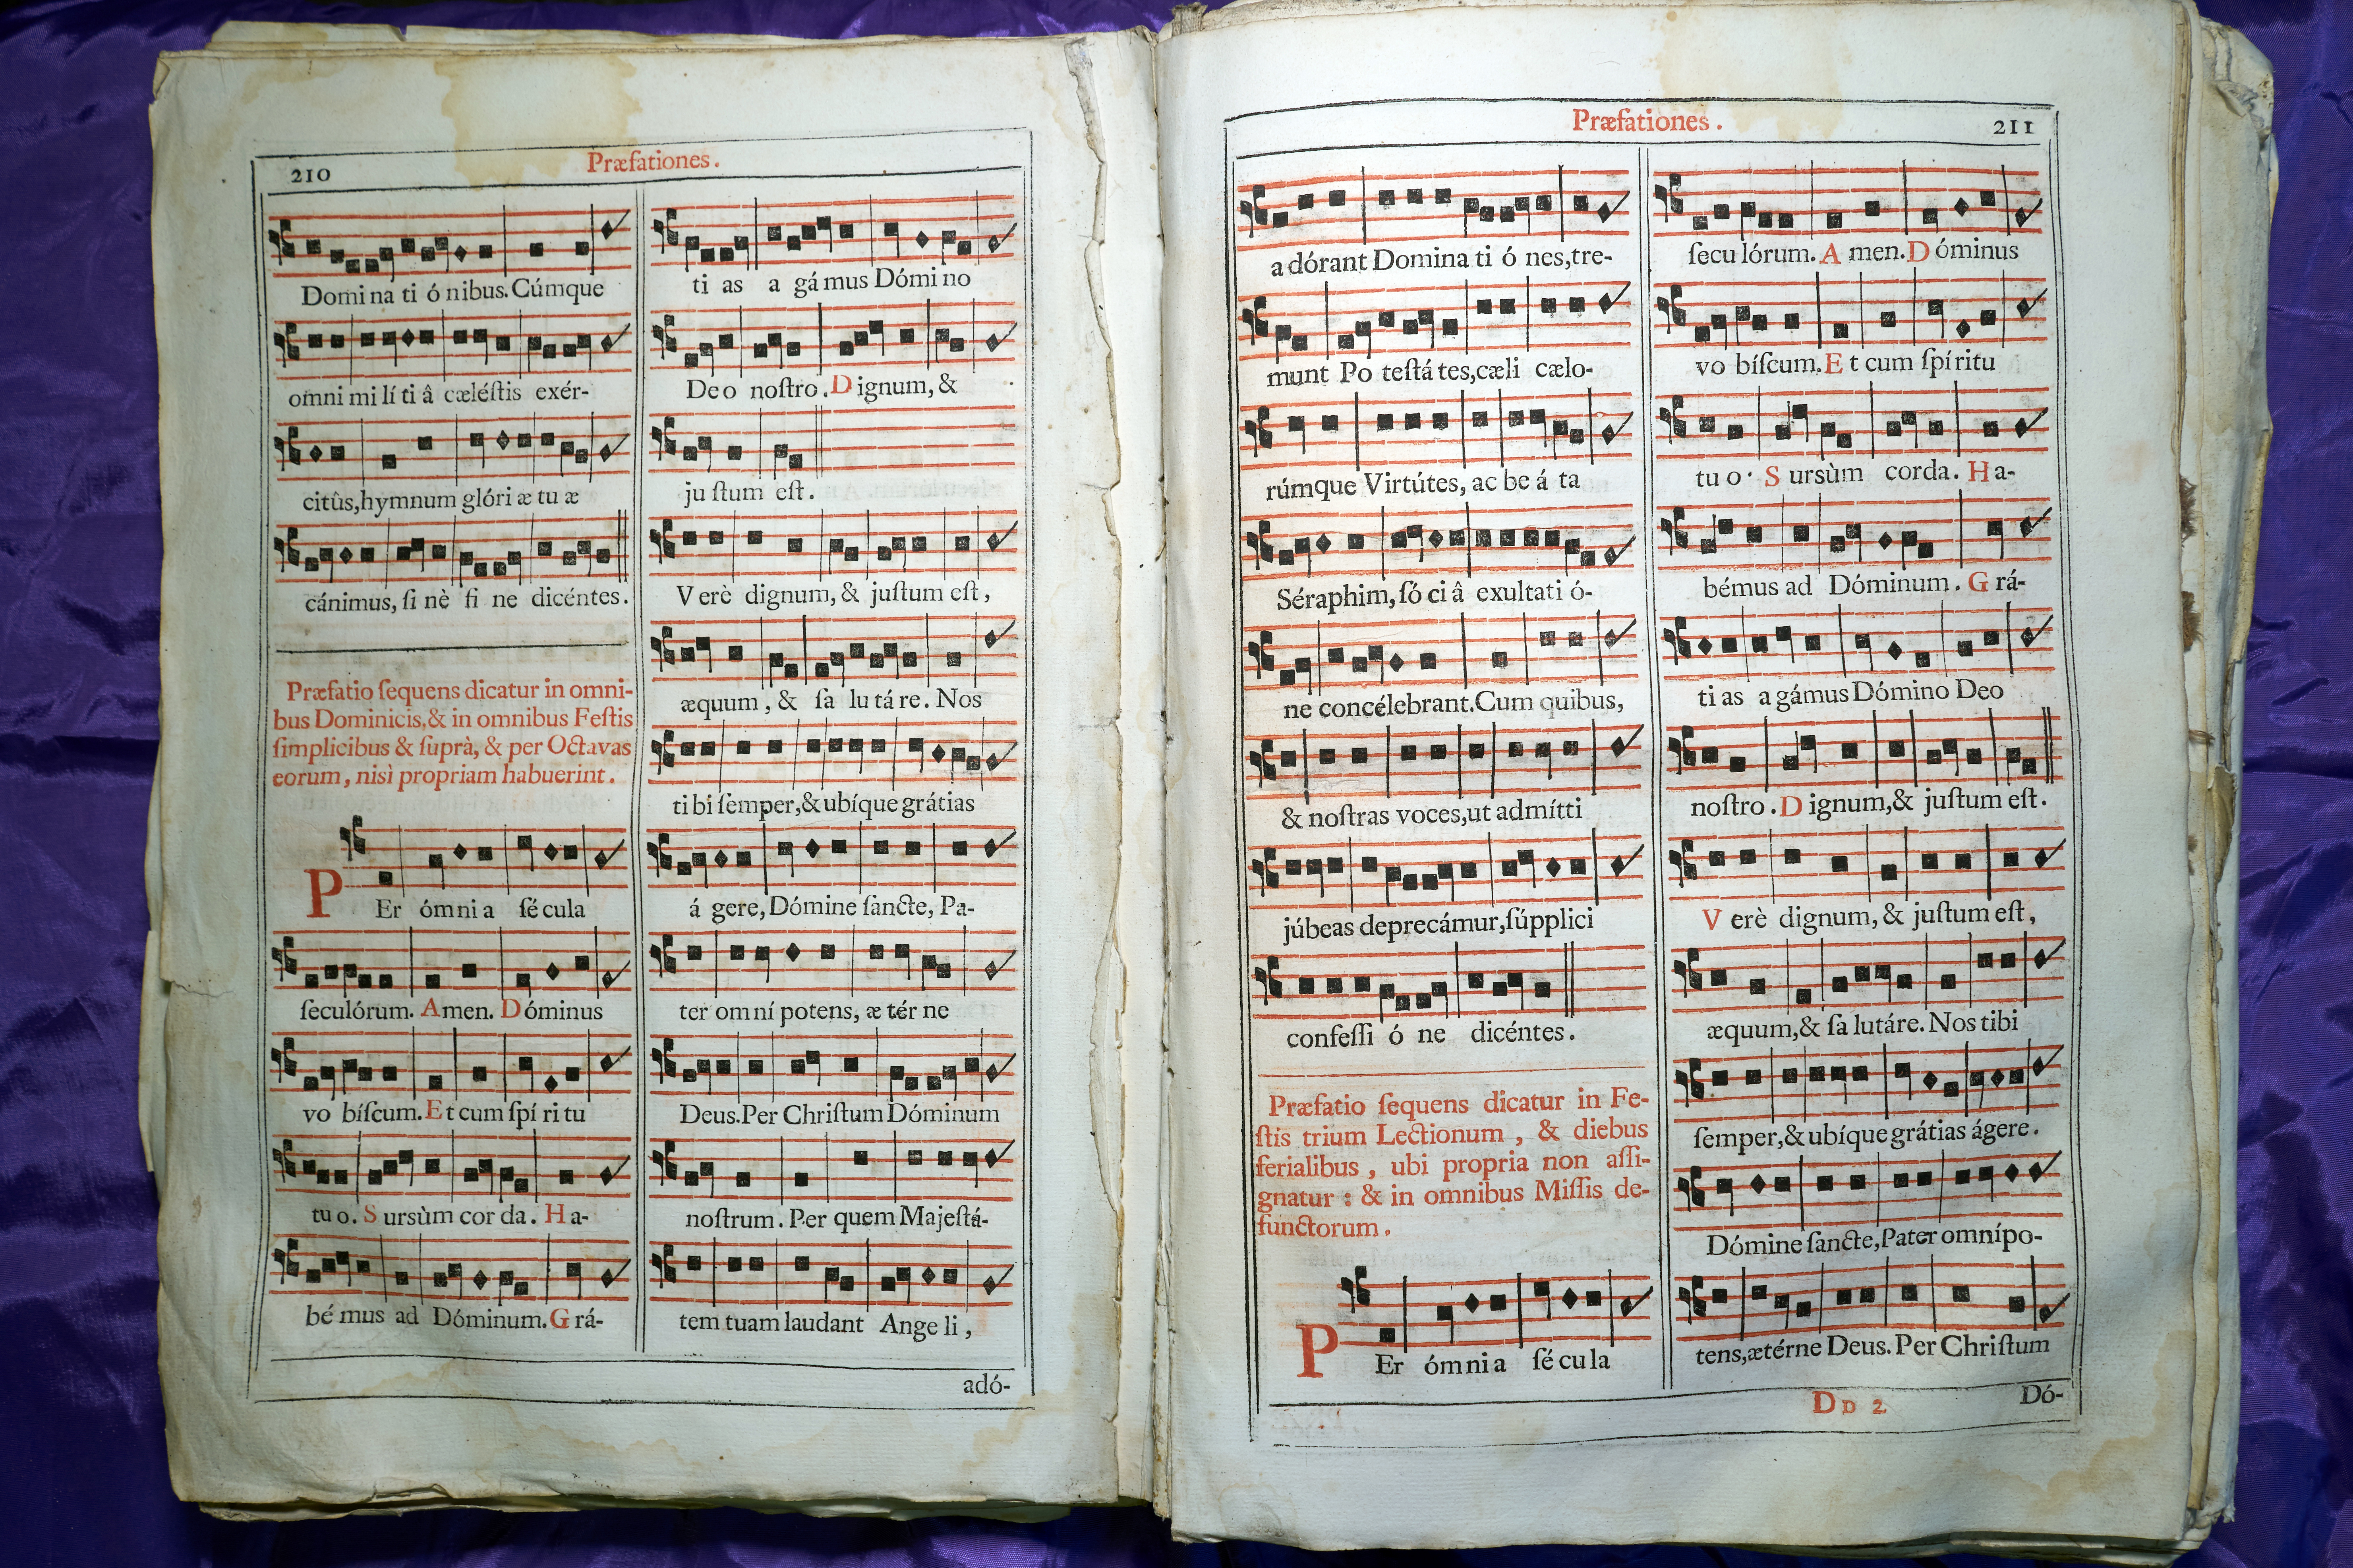 210
Præfationes.
Domi na ti ó nibus. Cúmque
omni mi lí ti â cæléſtis exér-
citûs, hymnum glóri æ tu æ
cánimus, ſi nè ſi ne dicéntes.
Præfatio ſequens dicatur in omni-
bus Dominicis, & in omnibus Feſtis
ſimplicibus & ſuprà, & per Octavas
eorum, nisì propriam habuerint.
PEr ómni a ſé cula
ſeculórum. Amen. Dóminus
vo bíſcum. Et cum ſpí ri tu
tu o. Sursùm cor da. Ha-
bé mus ad Dóminum. Grá-
ti as a gá mus Dómi no
Deo noſtro. Dignum, &
ju ſtum eſt.
Verè dignum, & juſtum eſt,
æquum, & ſa lu tá re. Nos
ti bi ſemper, & ubíque grátias
á gere, Dómine ſancte, Pa-
ter omní potens, æ tér ne
Deus. Per Chriſtum Dóminum
noſtrum. Per quem Majeſtá-
tem tuam laudant Ange li,
adó-
Præfationes.
211
a dórant Domina ti ó nes, tre-
munt Po teſtá tes, cæli cælo-
rúmque Virtútes, ac be á ta
Séraphim, ſó ci â exultati ó-
ne concélebrant. Cum quibus,
& noſtras voces, ut admítti
júbeas deprecámur, ſúpplici
confeſſi ó ne dicéntes.
Præfatio ſequens dicatur in Fe-
ſtis trium Lectionum, & diebus
ferialibus, ubi propria non aſſi-
gnatur : & in omnibus Miſſis de-
functorum.
PEr ómni a ſé cu la
ſecu lórum. Amen. Dóminus
vo bíſcum. Et cum ſpí ritu
tu o. Sursùm corda. Ha-
bémus ad Dóminum. Grá-
ti as a gámus Dómino Deo
noſtro. Dignum, & juſtum eſt.
Verè dignum, & juſtum eſt,
æquum, & ſa lutáre. Nos tibi
ſemper, & ubíque grátias ágere.
Dómine ſancte, Pater omnípo-
tens, ætérne Deus. Per Chriſtum
DD 2
Dó-